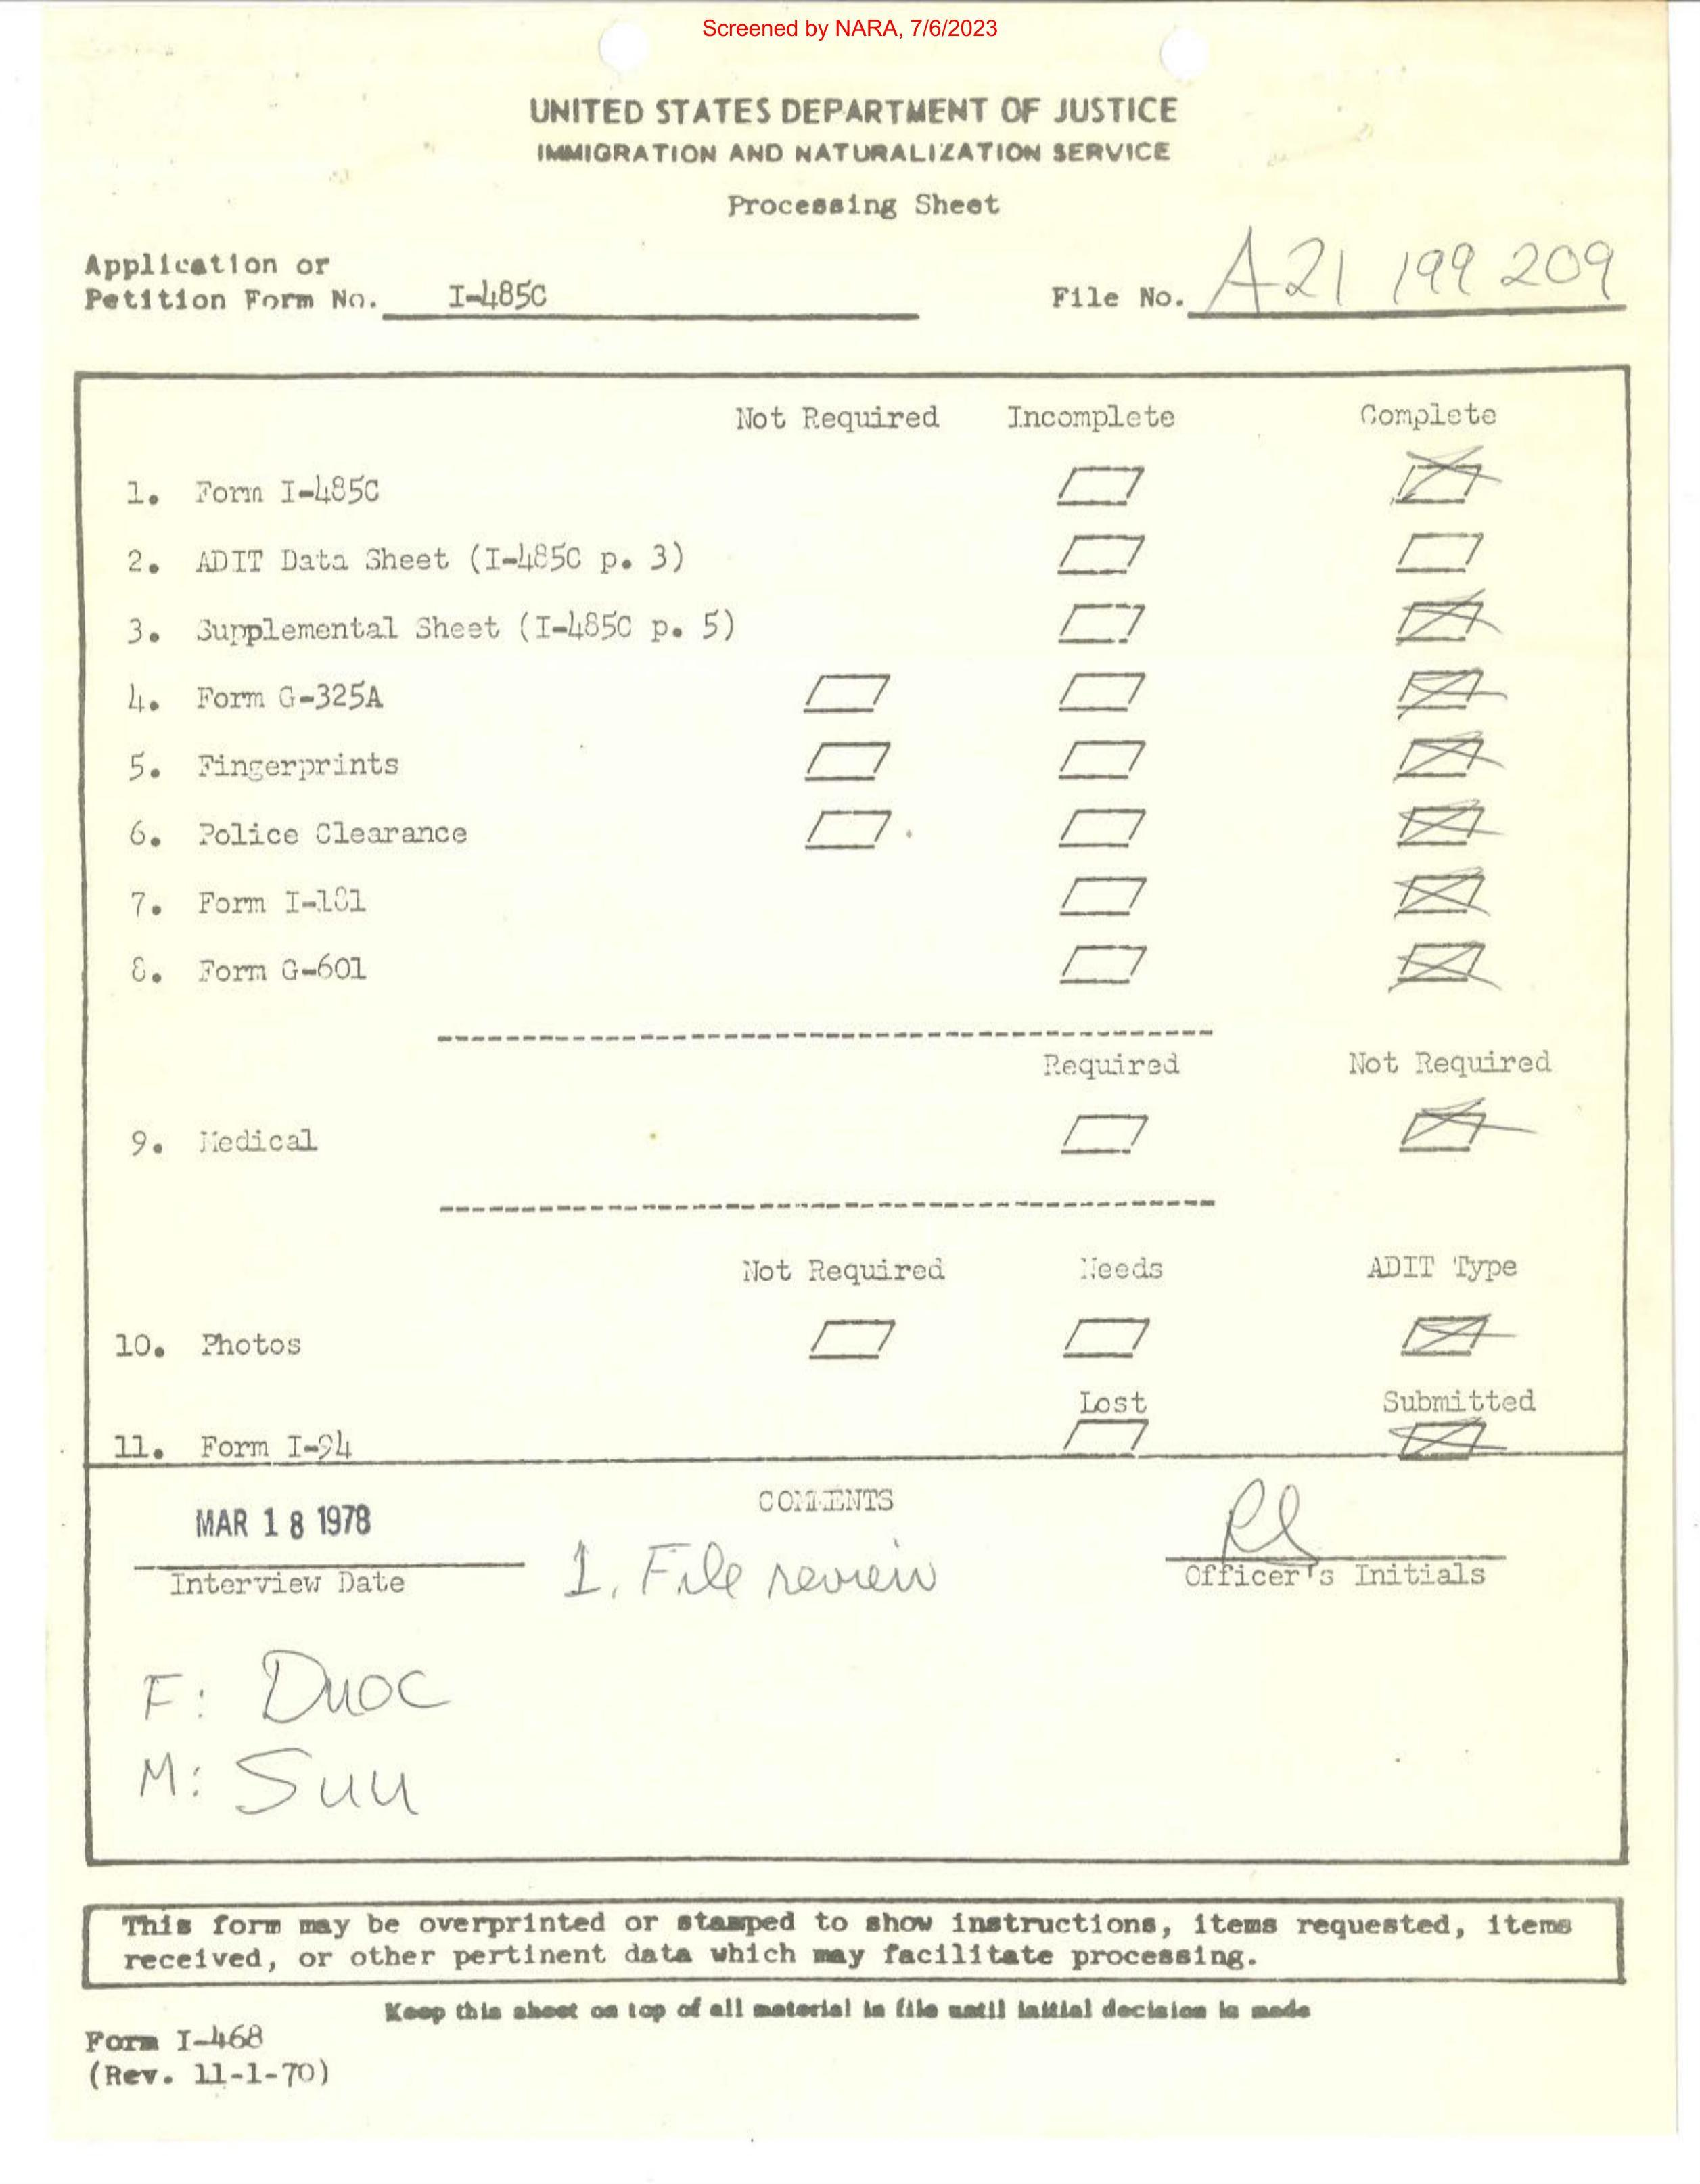 Screened by NARA, 7/6/2023
UNITED STATES DEPARTMENT OF JUSTICE
IMMIGRATION AND NATURALIZATION SERVICE
Processing Sheet
Application or
Petition Form No. I-485C File No. A21 199 209
Not Required Incomplete Complete
1. Form I-485C
2. ADIT Data Sheet (I-485C p. 3)
3. Supplemental Sheet (I-485C p. 5)
4. Form G-325A
5. Fingerprints
6. Police Clearance
7. Form I-181
8. Form G-601
Required Not Required
9. Medical
Not Required Needs ADIT Type
10. Photos
Lost Submitted
11. Form I-94
MAR 18 1978 COMMENTS
Interview Date 1. File review Officer's Initials
F: Duoc
M: Suu
This form may be overprinted or stamped to show instructions, items requested, items
received, or other pertinent data which may facilitate processing.
Keep this sheet on top of all material in file until initial decision is made
Form I-468
(Rev. 11-1-70)